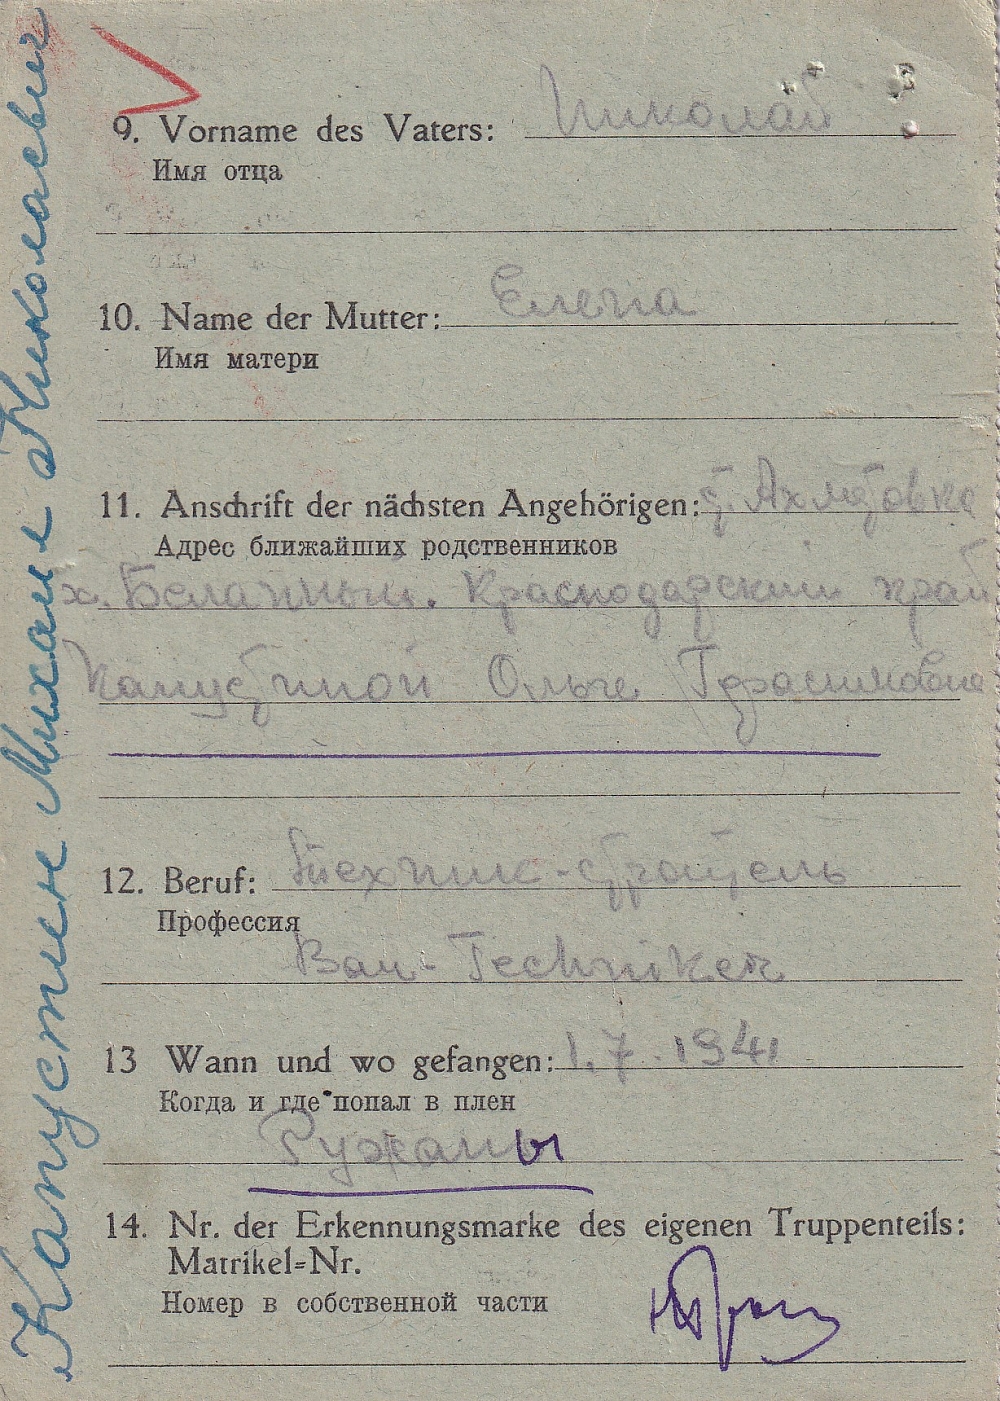 9. Vorname des Vaters: Николай
Имя отца
10. Name der Mutter: Елена
Имя матери
11. Anschrift der nächsten Angehörigen: Ахметовка
Адрес ближайших родственников
х. Краснодарский край
Капустиной Ольге Герасимовне
12. Beruf: Техник-строитель
Профессия
Bau-Techniker
13 Wann und wo gefangen: 1.7.1941
Когда и где попал в плен
Ружаны
14. Nr. der Erkennungsmarke des eigenen Truppenteils:
Matrikel=Nr.
Номер в собственной части
Капустин Михаил Николаевич